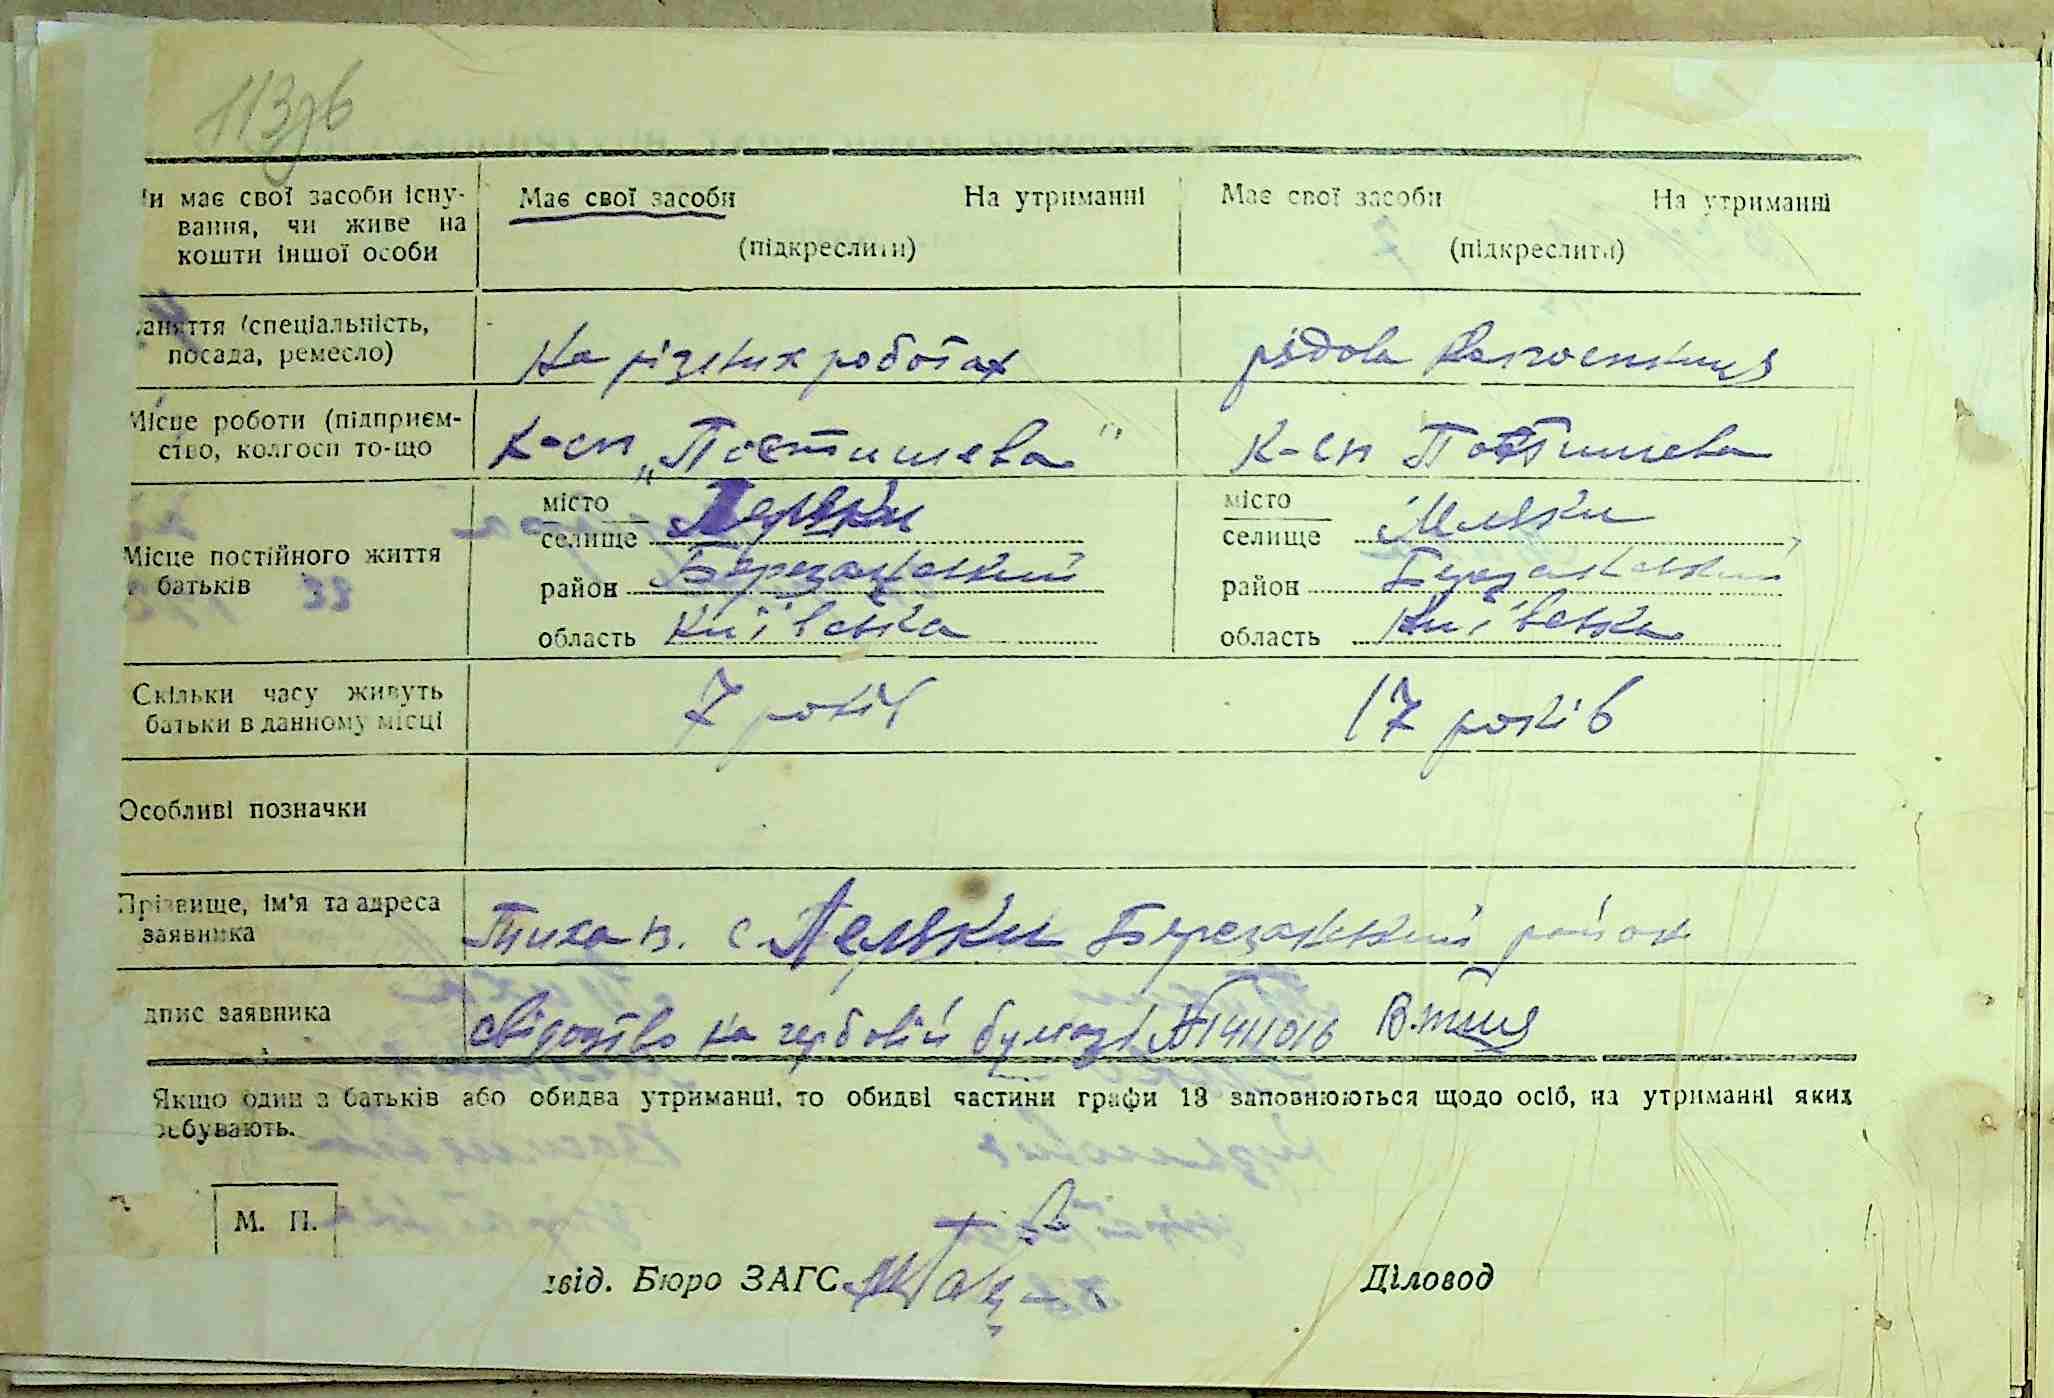 113зв
Чи має свої засоби існу- Має свої засоби На утриманні Має свої засоби На утриманні
вання, чи живе на
кошти іншої особи (підкреслити) (підкреслити)
Заняття (спеціальність,
посада, ремесло) На різних роботах рядова колгоспниця
Місце роботи (підприєм-
ство, колгосп то-що К-сп „Постишева" К-сп Постишева
місто місто
селище селище
Місце постійного життя
батьків район Березанський район Березанський
область Київська область Київська
Скільки часу живуть
батьки в данному місці 7 років 17 років
Особливі позначки
Прізвище, ім'я та адреса
заявника Тиха В. с Березанський район
підпис заявника свідоцтво на гербовій бумазі № 1411016 В. Тиха
Якщо один з батьків або обидва утриманці, то обидві частини графи 13 заповнюються щодо осіб, на утриманні яких
ребувають.
М. П.
Звід. Бюро ЗАГС Діловод